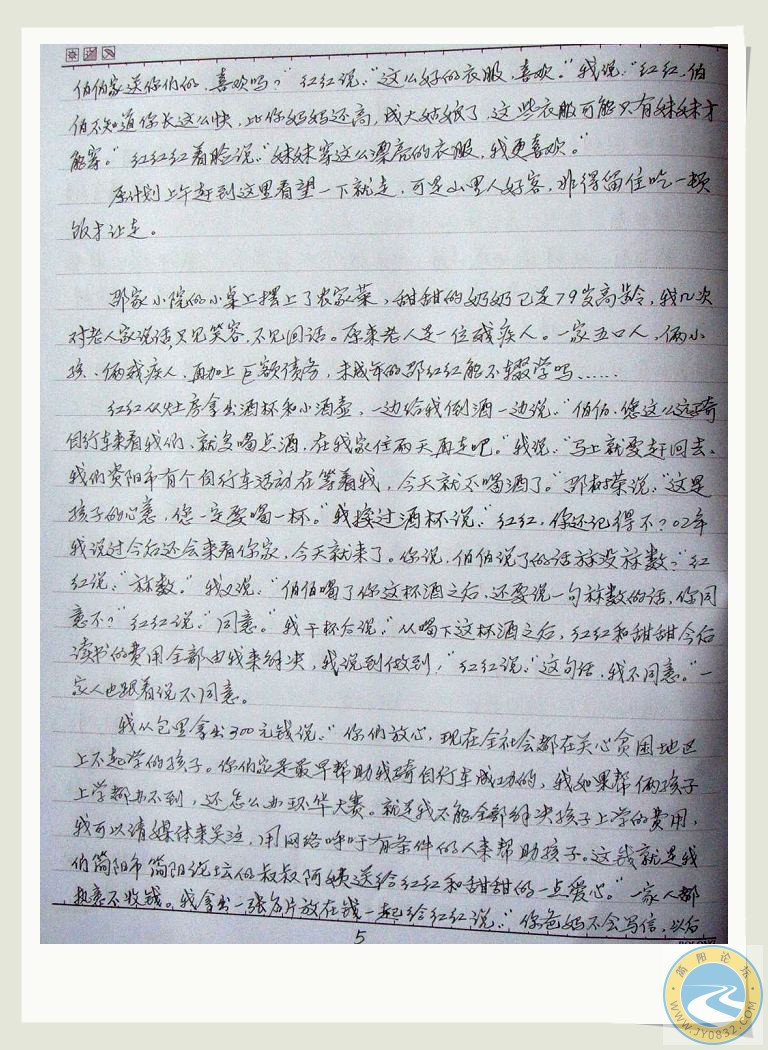 伯伯家送你们的，喜欢吗？”红红说：“这么好的衣服，喜欢。”我说：“红红，伯
伯不知道你长这么快，比你妈妈还高，成大姑娘了，这些衣服可能只有妹妹才
能穿。”红红红着脸说：“妹妹穿这么漂亮的衣服，我更喜欢。”
原计划上午赶到这里看望一下就走，可是山里人好客，非得留住吃一顿
饭才让走。
邵家小院的小桌上摆上了农家菜，甜甜的奶奶已是79岁高龄，我几次
对老人家说话，只见笑容，不见回话。原来老人是一位残疾人。一家五口人，俩小
孩、俩残疾人，再加上巨额债务，未成年的邵红红能不辍学吗……
红红从灶房拿出酒杯和小酒壶，一边给我倒酒一边说：“伯伯，您这么远骑
自行车来看我们，就多喝点酒，在我家住两天再走吧。”我说：“马上就要赶回去，
我们资阳市有个自行车活动在等着我，今天就不喝酒了。”邵树荣说：“这是
孩子的心意，您一定要喝一杯。”我接过酒杯说：“红红，你还记得不？02年
我说过今后还会来看你家，今天就来了。你说，伯伯说了的话放没放数？”红
红说：“放数。”我又说：“伯伯喝了你这杯酒之后，还要说一句放数的话，你同
意不？”红红说：“同意。”我干杯后说：“从喝下这杯酒之后，红红和甜甜今后
读书的费用全部由我来解决，我说到做到！”红红说：“这句话，我不同意。”一
家人也跟着说不同意。
我从包里拿出300元钱说：“你们放心，现在全社会都在关心贫困地区
上不起学的孩子。你们家是最早帮助我骑自行车成功的，我如果帮俩孩子
上学都办不到，还怎么办环华大赛。就是我不能全部解决孩子上学的费用，
我可以请媒体来关注，用网络呼吁有条件的人来帮助孩子。这钱就是我
们简阳市简阳论坛的叔叔阿姨送给红红和甜甜的一点爱心。”一家人都
执意不收钱。我拿出一张名片放在钱一起给红红说：“你爸妈不会写信，以后
5
简阳论坛
WWW.JY0832.COM